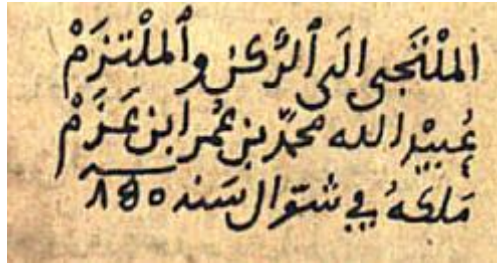 الملْتَجِى الَى ٱلرُّكنِ وٱلملْتزَمْ
عُبيْد الله محمّد بن عُمر ابن عَزَمْ
مَلكَهُ في شوّال سَنه